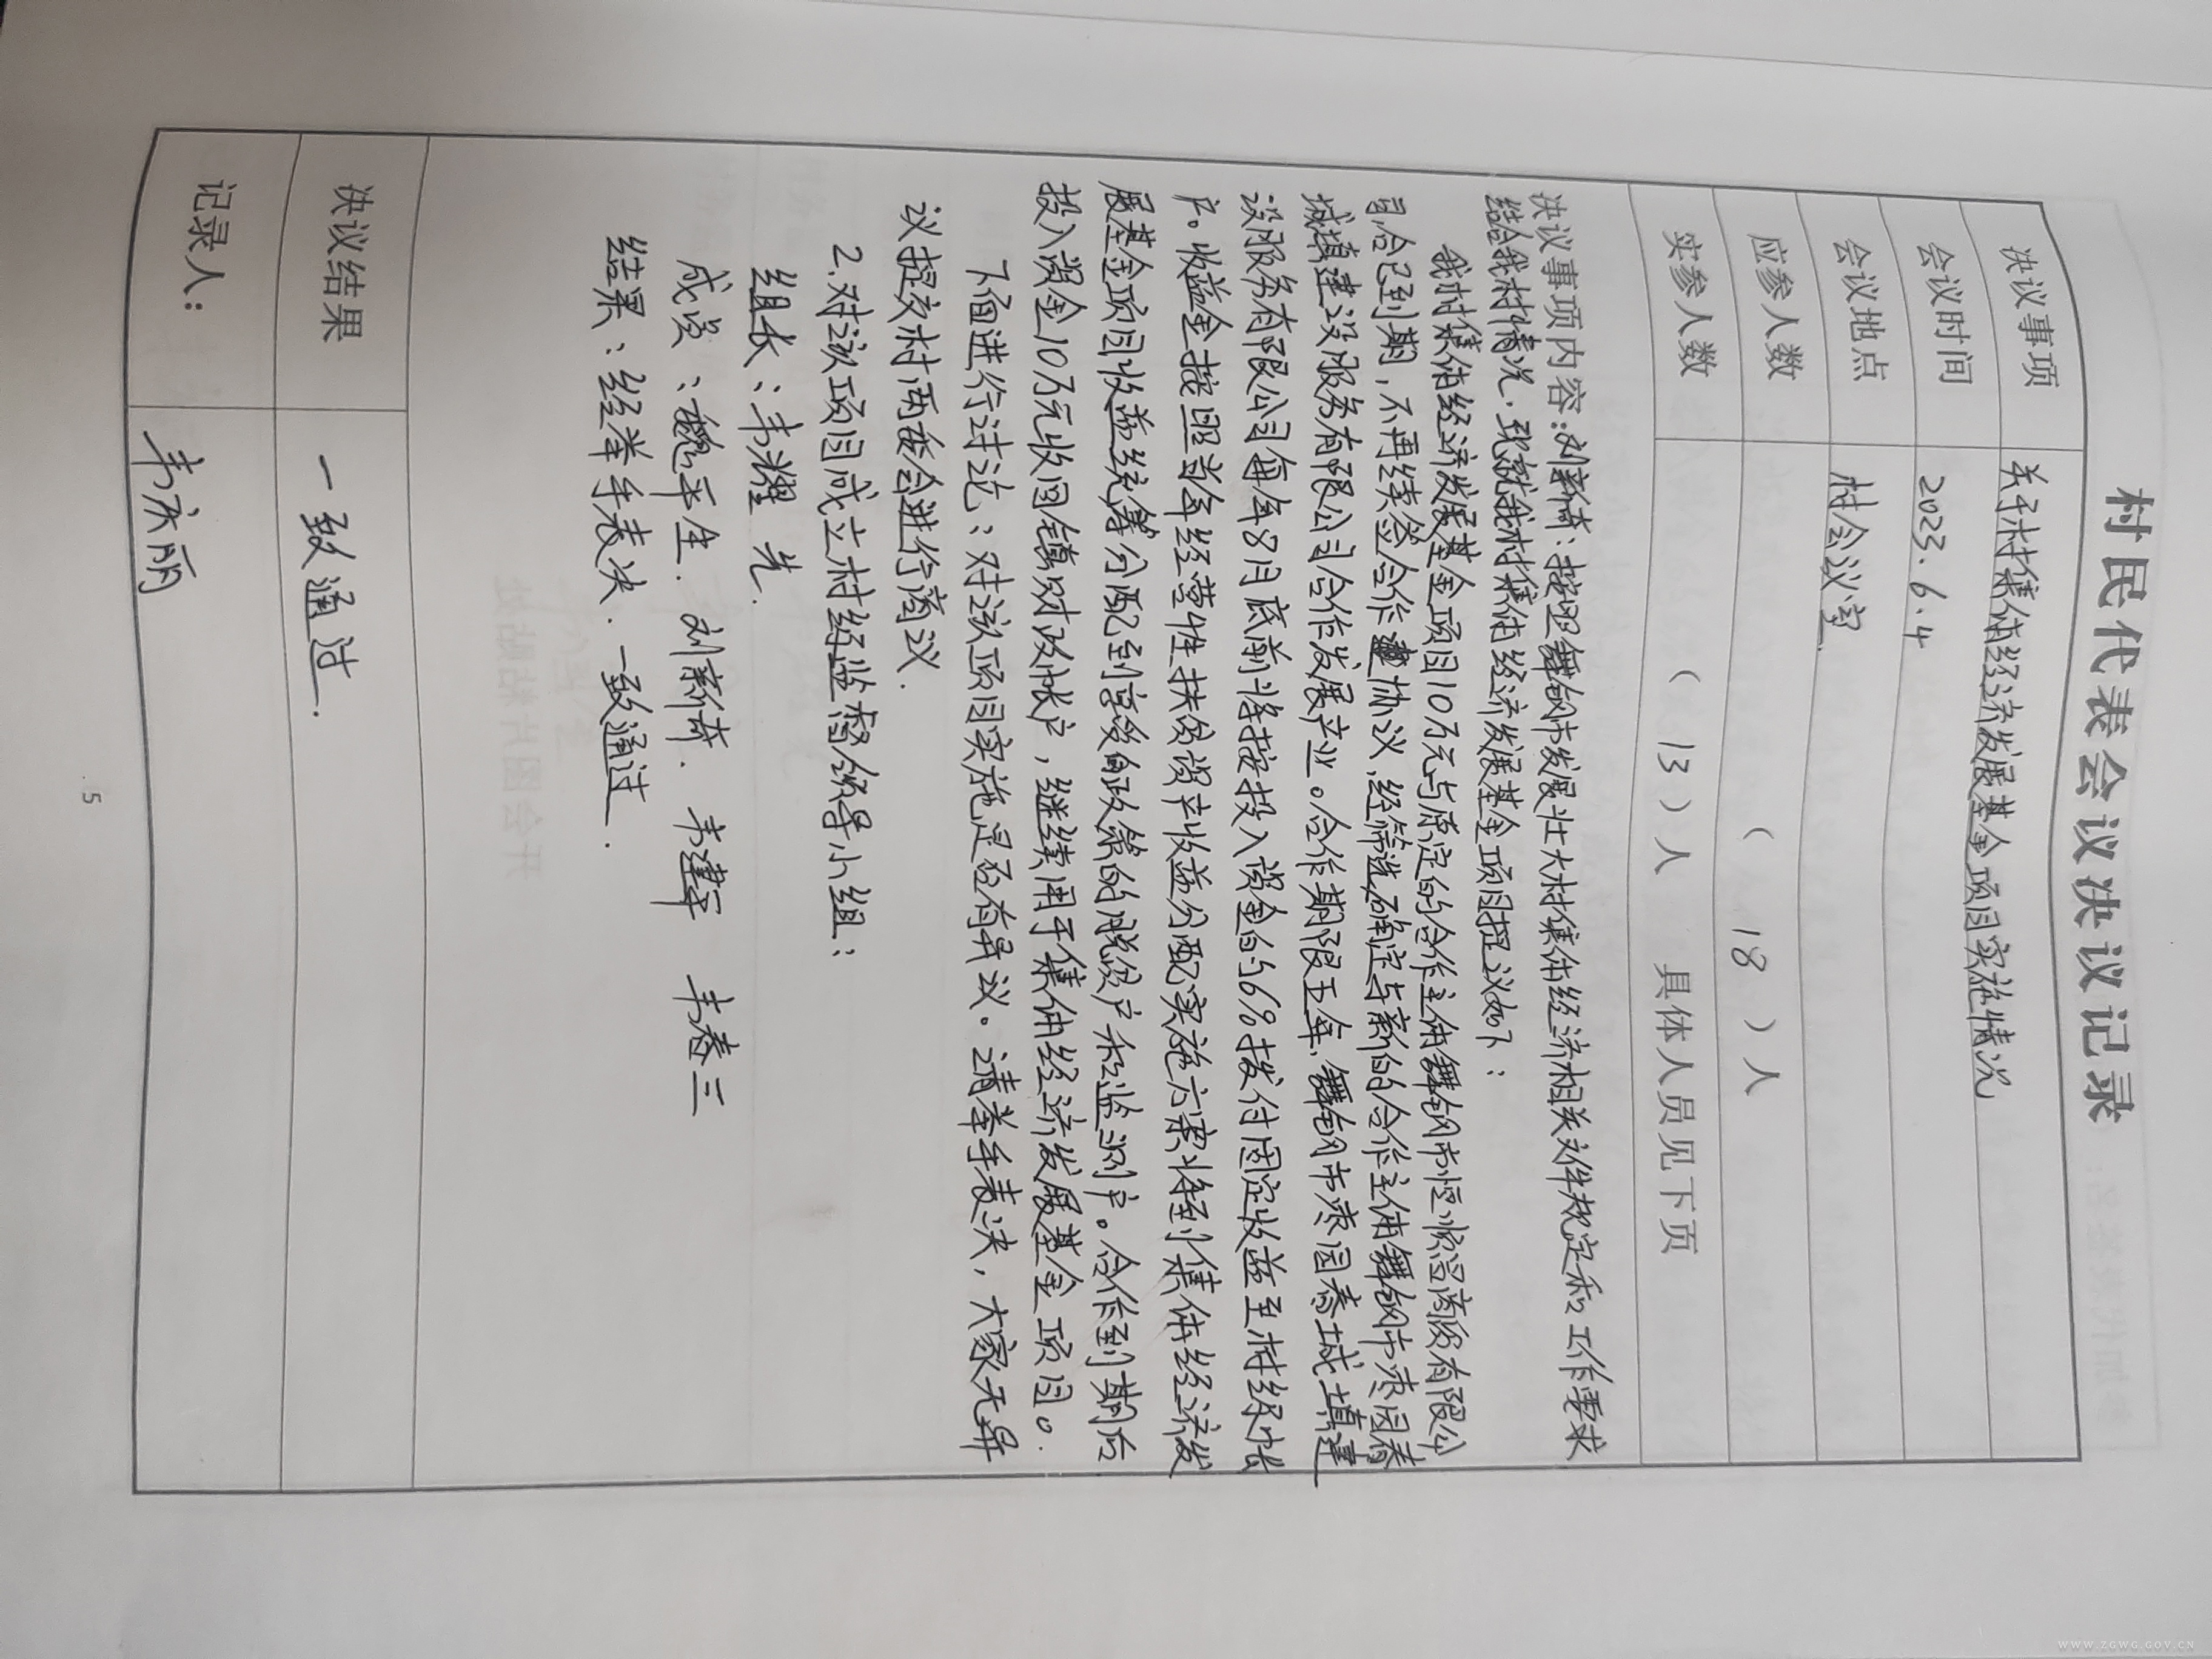 村民代表会议决议记录
决议事项 关于村集体经济发展基金项目实施情况
会议时间 2023.6.4
会议地点 村会议室.
应参人数 ( 18 ) 人
实参人数 ( 13 ) 人 具体人员见下页
决议事项内容:刘新奇:按照舞钢市发展壮大村集体经济相关文件规定和工作要求
结合我村情况,现就我村集体经济发展基金项目提议如下:
我村集体经济发展基金项目10万元与原定的合作主体舞钢市恒 商贸有限公
司合已到期,不再续签合作协议,经筛选确定与新的合作主体舞钢市枣园春
城镇建设服务有限公司合作发展产业。合作期限五年,舞钢市枣园春城镇建
设服务有限公司每年8月底前将按投入资金的6%拨付固定收益至村级帐
户。收益金按照当年经营性扶贫资产收益分配实施方案将到集体经济发
展基金项目收益统筹分配到享受政策的脱贫户和监测户。合作到期后
投入资金10万元收回镇财政帐户,继续用于集体经济发展基金项目。
下面进行讨论:对该项目实施是否有异议。请举手表决,大家无异
议提交村两委会进行商议.
2.对该项目成立村级监督领导小组:
组长:韦耀先.
成员:魏平生. 刘新奇. 韦建军 韦春三
结果:经举手表决.一致通过.
决议结果 一致通过.
记录人: 韦庆丽
5
WWW.ZGWG.GOV.CN